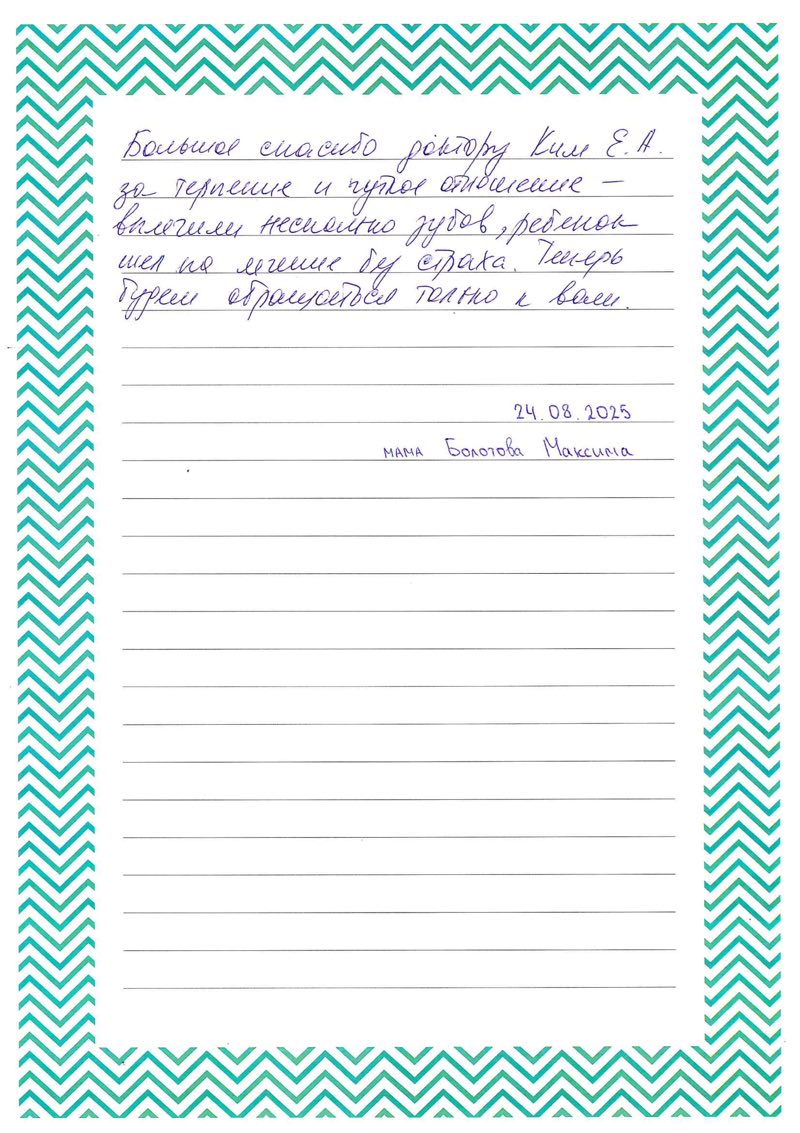 Большое спасибо доктору Ким Е.А.
за терпение и чуткое отношение –
вылечили несколько зубов, ребенок
шел на лечение без страха. Теперь
будем обращаться только к вам.
24.08.2025
мама Болотова Максима